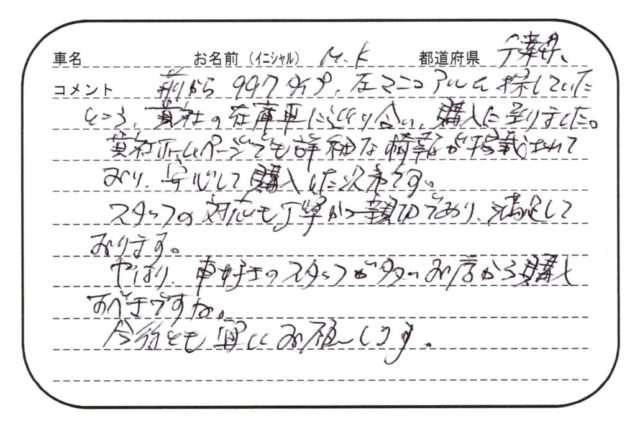 車名 お名前（イニシャル） M.K 都道府県 千葉県
コメント 前から997タイプ、左マニュアルを探していた
ところ、貴社の在庫車に巡り合い、購入に至りました。
貴社ホームページでも詳細な情報が掲載されて
おり、安心して購入した次第です。
スタッフの対応も丁寧かつ親切であり、満足して
おります。
やはり、車好きのスタッフが多いお店から購入
すべきですね。
今後とも宜しくお願いします。